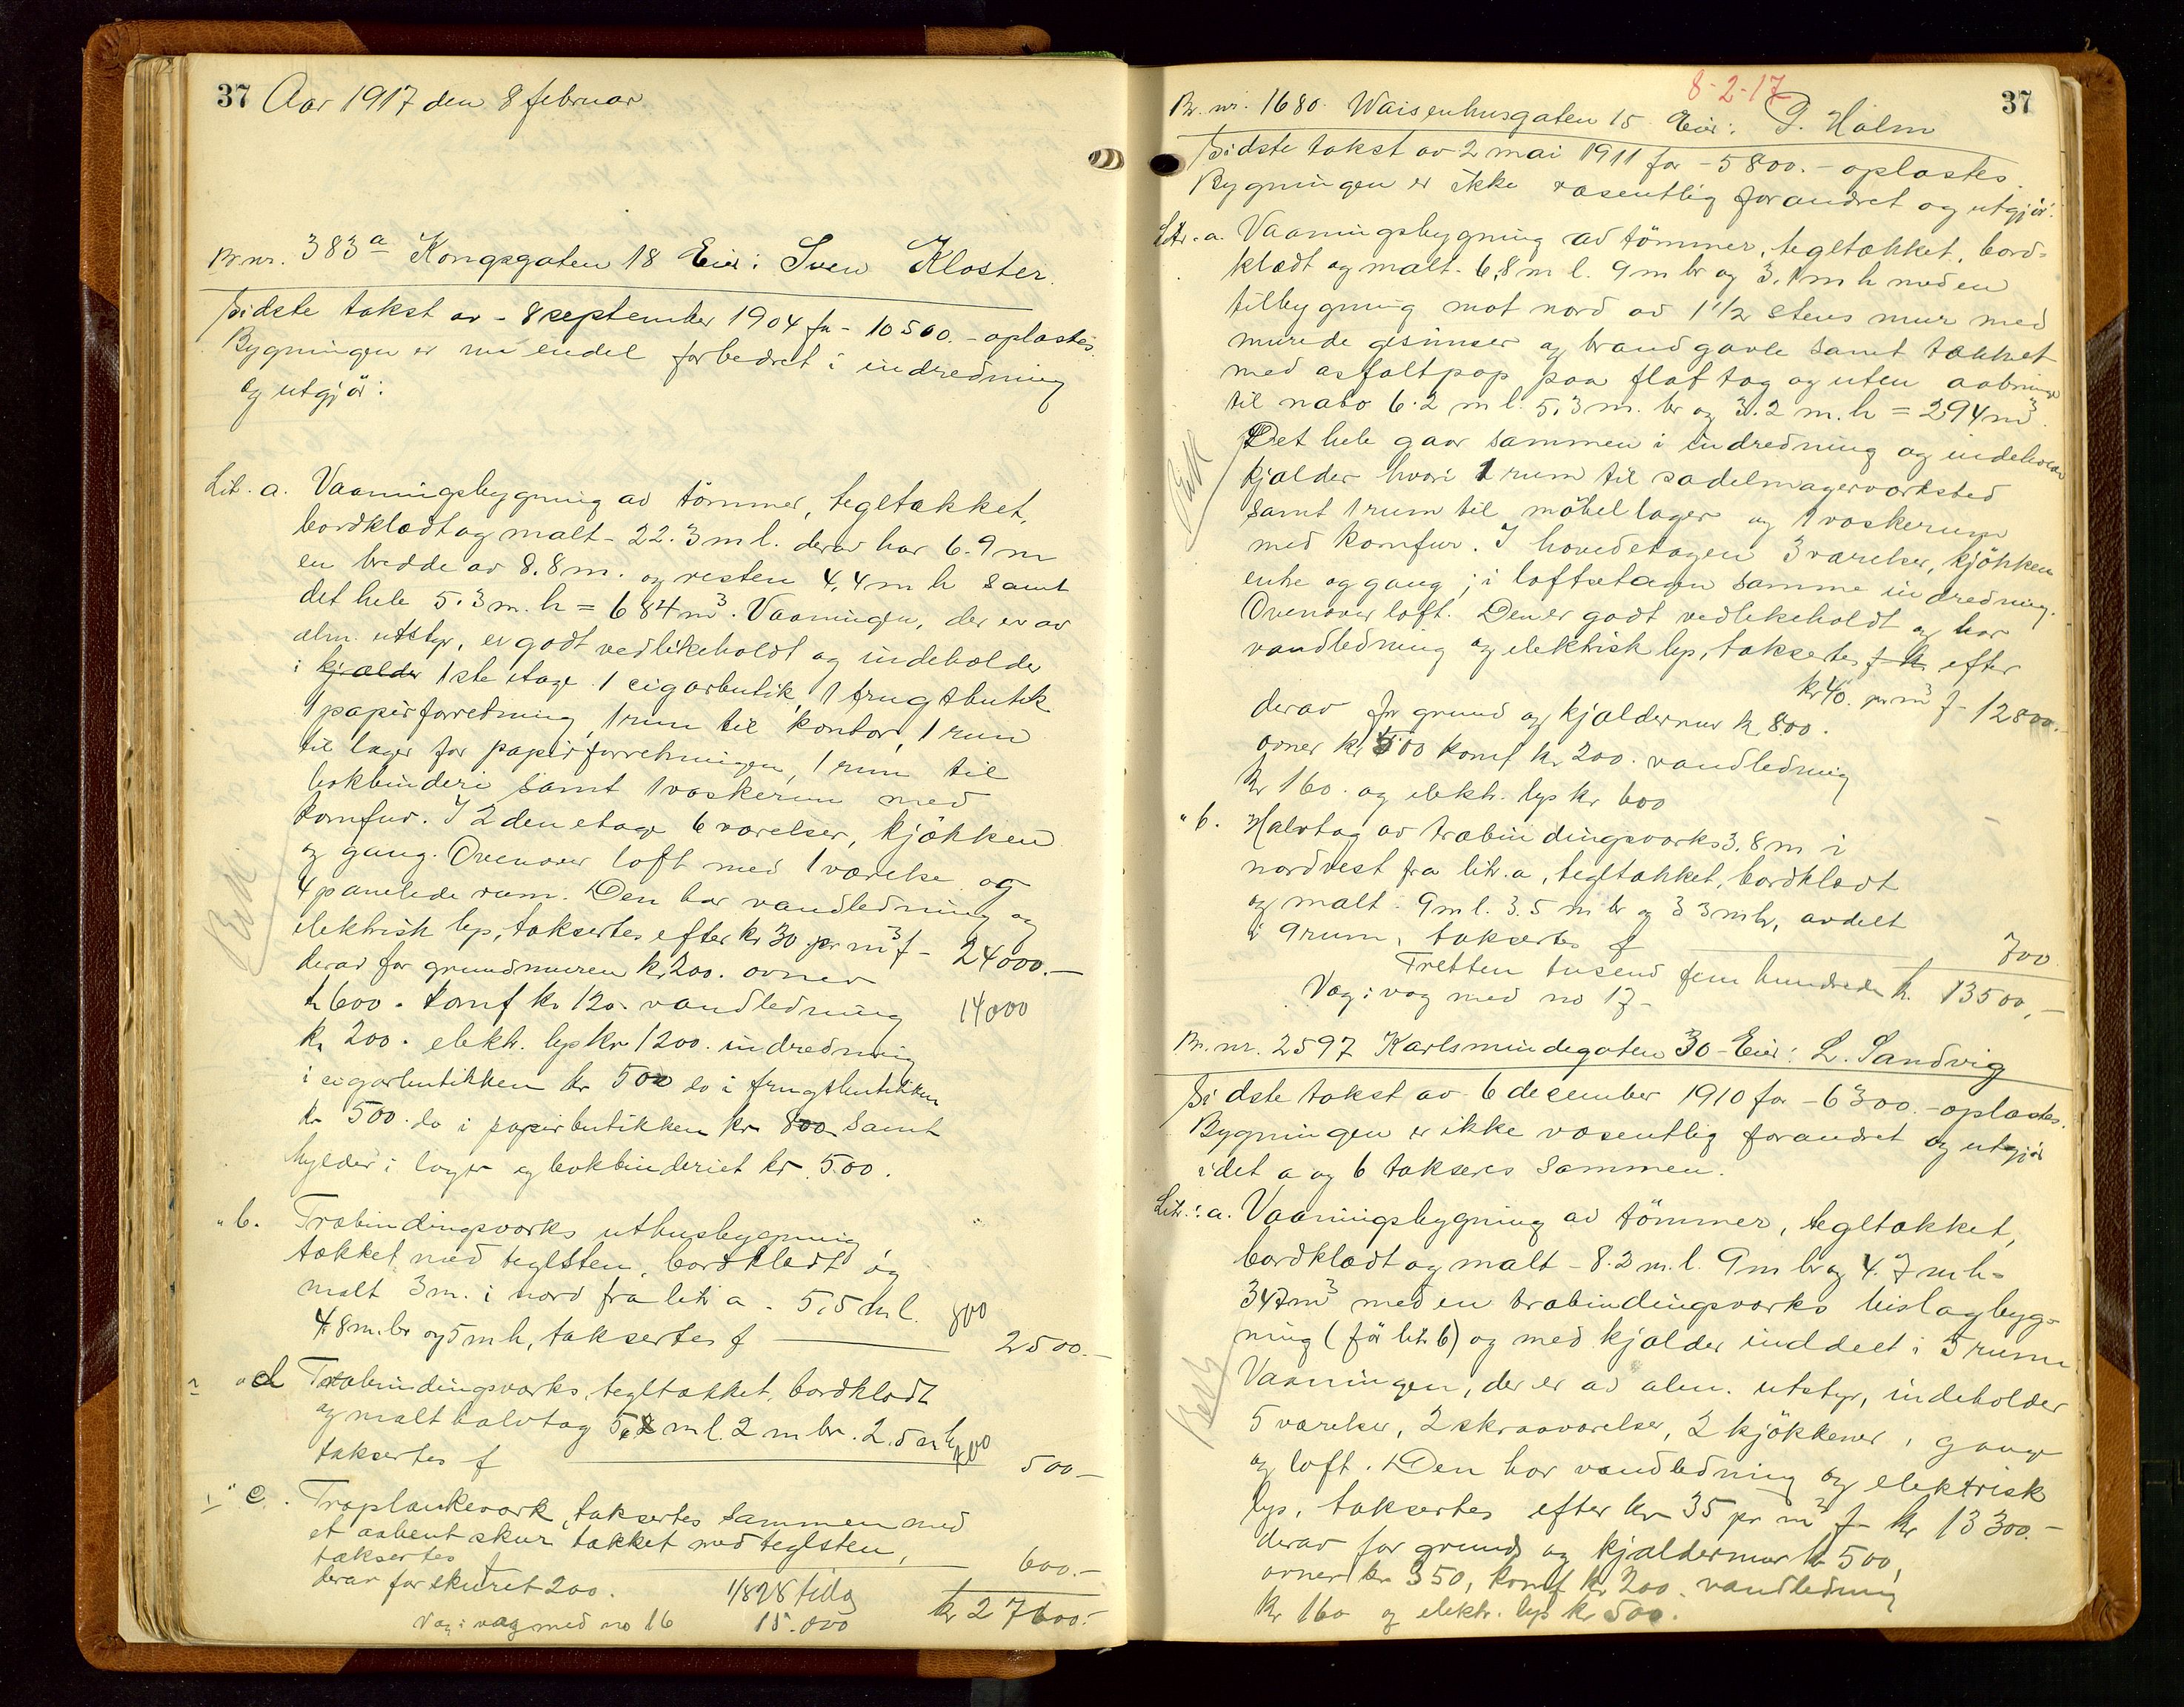 37 Aar 1917 den 8 februar
Br nr. 383a Kongsgaten 18 Eier: Sven Kloster.
Sidste takst av - 8 september 1904 fr - 10500. - oplæstes.
Bygningen er nu endel forbedret i indredning
og utgjör:
Lit. a. Vaaningsbygning av tömmer, tegltækket,
bordklædt og malt - 22.3 m l. derav har 6.9 m
en bredde av 8.8 m. og resten 4,4 m h samt
det hele 5.3 m. h = 684 m3. Vaaningen, der er av
alm. utstyr, er godt vedlikeholdt og indeholder
i kjælder 1ste etage 1 cigarbutik, 1 frugtbutik
1 papirforretning, 1 rum til kontor, 1 rum
til lager for papirforretningen, 1 rum til
bokbinderi samt 1 vaskerum med
komfur. I 2den etage 6 værelser, kjökken
og gang. Ovenover loft med 1 værelse og
4 panelede rum. Den har vandledning og
elektrisk lys, taksertes efter kr 30 pr m3 f - 24000.-
derav for grundmuren kr 200. ovner
kr 600. komf kr 120. vandledning 14000
kr 200. elektr. lys kr 1200. indredning
i cigarbutikken kr 500 do i frugtbutikken
kr 500. do i papirbutikken kr 800 samt
hylder i lager og bokbinderiet kr 500.
" b. Træbindingsværks uthusbygning
tækket med teglsten, bordklædt og
malt 3 m. i nord fra litr a - 5,5 m l. 800
4.8 m. br og 5 m h, taksertes f 2500.-
" d Træbindingsværks, tegltækket, bordklædt
og malt halvtag 5,2 m l. 2 m br. 2.5 m h 400
taksertes f 500-
" e. Træplankeværk, taksertes sammen med
et aabent skur tækket med teglsten,
taksertes f 600.-
derav for skuret 200. 1/8 28 tillæg kr 27600.-
Vag: vag med no 16 15.000
8-2-17
37
Br. nr. 1680. Waisenhusgaten 15 Eier: P. Holm
Sidste takst av 2 mai 1911 for - 5800. - oplæstes.
Bygningen er ikke væsentlig forandret og utgjör:
Litr. a. Vaaningsbygning av tömmer, tegltækket, bord-
klædt og malt - 6,8 m l. 9 m br og 3.1 m h med en
tilbygning mot nord av 1 1/2 stens mur med
murede gesimser og brandgavle samt tækket
med asfaltpap paa flat tag og uten aabninger
til nabo 6.2 m l. 5.3 m. br og 3.2 m. h = 294 m3.
Det hele gaar sammen i indredning og indeholder
kjælder hvori 1 rum til sadelmagerværksted
samt 1 rum til möbellager og 1 vaskerum
med komfur. I hovedetagen 3 værelser, kjökken
entre og gang; i loftsetagen samme indredning.
Ovenover loft. Den er godt vedlikeholdt og har
vandledning og elektrisk lys, taksertes f kr efter
kr 40. pr m3 f - 12800.-
derav for grund og kjældermur kr 800.
ovner kr 500 komf kr 200. vandledning
kr 160. og elektr. lys kr 600
" b. Halvtag av træbindingsværks 3.8 m i
nordvest fra litr. a, tegltækket, bordklædt
og malt. 9 m l. 3.5 m br og 3 3 m h, avdelt
i 9 rum, taksertes f 700
Tretten tusend fem hundrede kr. 13500,-
Vag: vag med no 17-
Br. nr. 2597 Karlsmindegaten 30 - Eier: L. Sandvig
Sidste takst av 6 december 1910 for - 6300. - oplæstes.
Bygningen er ikke væsentlig forandret og utgjör
idet a og b takseres sammen.
Litr.: a. Vaaningsbygning av tömmer, tegltækket,
bordklædt og malt - 8.2 m. l. 9 m br og 4.7 m h =
347 m3 med en træbindingsværks bislagbyg-
ning (för litr b) og med kjælder inddeet i 5 rum
Vaaningen, der er av alm. utstyr, indeholder
5 værelser, 2 skraaværelser, 2 kjökkener, gange
og loft. Den har vandledning og elektrisk
lys, taksertes efter kr 35 pr m3 f kr 13300.-
derav for grund og kjældermur kr 500,
ovner kr 350, komf kr 200. vandledning
kr 160 og elektr. lys kr 500.